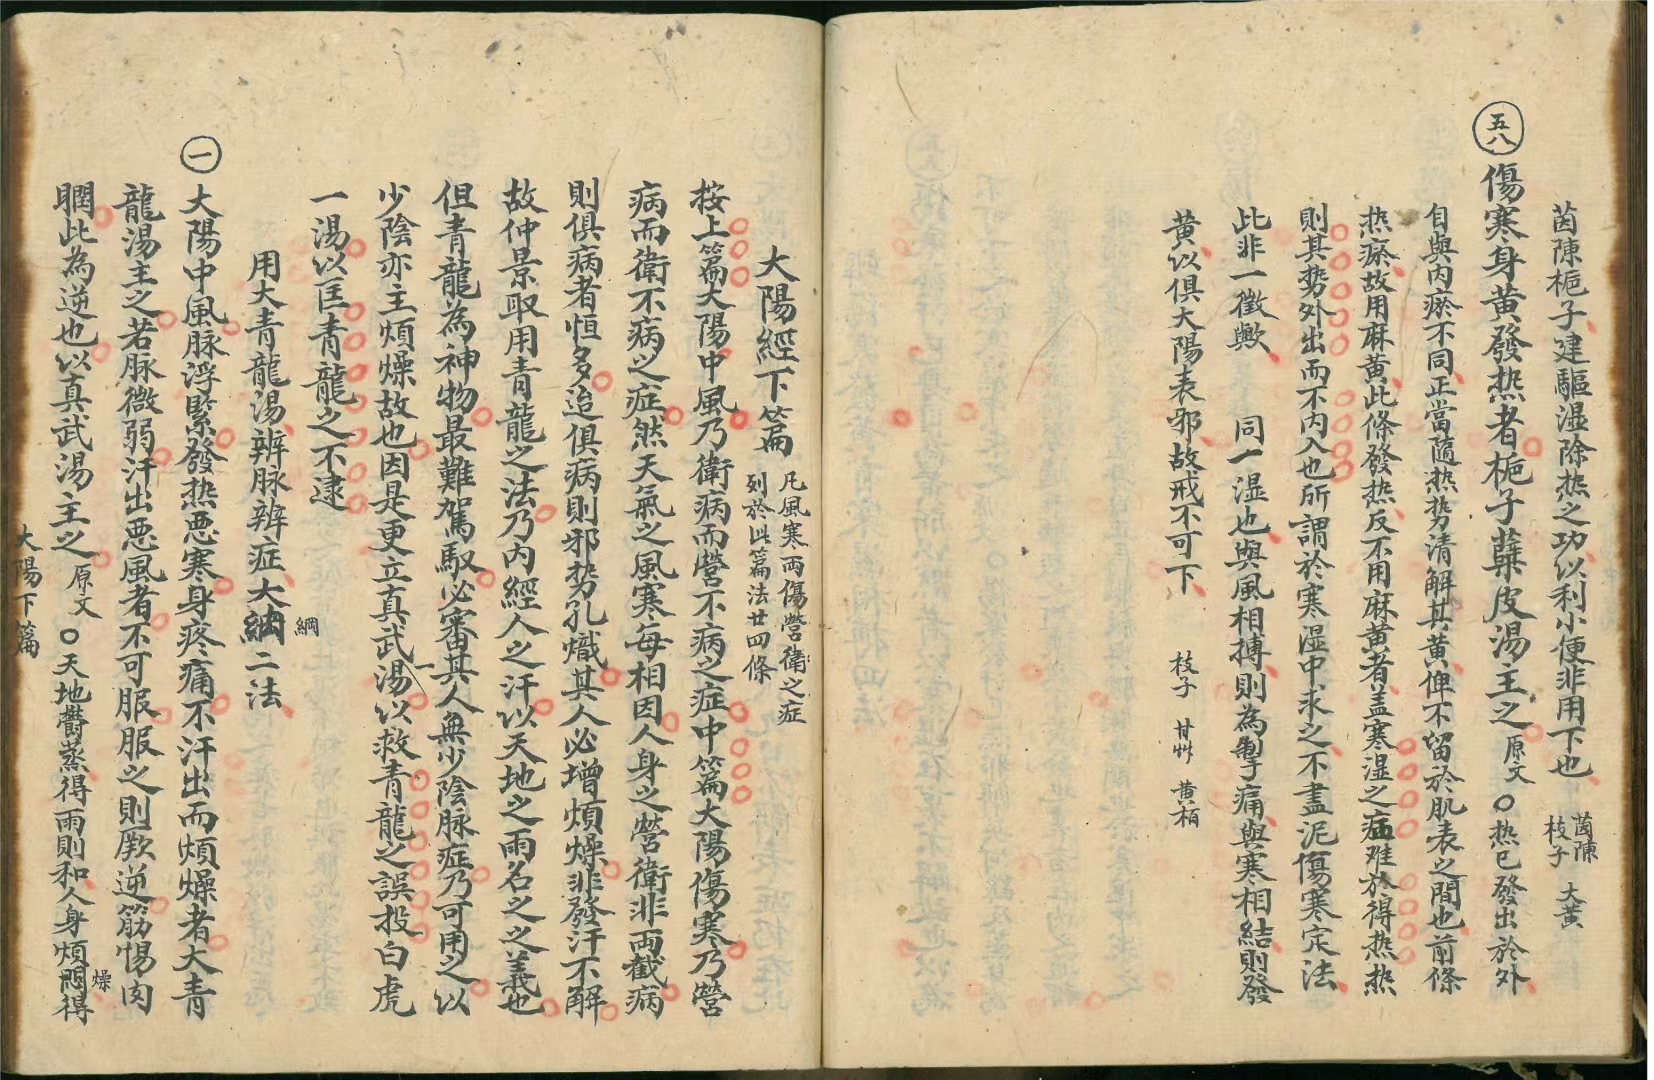 茵陳梔子建驅湿除热之功以利小便非用下也 茵陳 枝子 大黄
五八 傷寒身黄發热者梔子蘖皮湯主之 原文 〇热已發出於外
自與内瘀不同正當随热势清解其黄俾不留於肌表之間也前條
热瘀故用麻黄此條發热反不用麻黄者盖寒湿之症难於得热热
則其势外出而不内入也所謂於寒湿中求之不盡泥傷寒定法
此非一徵歟 同一湿也與風相搏則為掣痛與寒相結則發
黄以俱大陽表邪故戒不可下 枝子 甘艸 黄栢
大陽經下篇 凡風寒两傷營衛之症
列於此篇法廿四條
按上篇大陽中風乃衛病而營不病之症中篇大陽傷寒乃營
病而衛不病之症然天氣之風寒每相因人身之營衛非两截病
則俱病者恒多迨俱病則邪势孔熾其人必增煩燥非發汗不解
故仲景取用青龍之法乃内經人之汗以天地之雨名之之義也
但青龍為神物最難駕馭必審其人無少陰脉症乃可用之以
少陰亦主煩燥故也因是更立真武一湯以救青龍之誤投白虎
一湯以匡青龍之不逮
用大青龍湯辨脉辨症大綱二法 綱
一 大陽中風脉浮緊發热悪寒身疼痛不汗出而煩燥者大青
龍湯主之若脉微弱汗出悪風者不可服服之則厥逆筋惕肉
瞤此為逆也以真武湯主之 原文 〇天地欝蒸得雨則和人身煩悶得 燥
大陽下篇